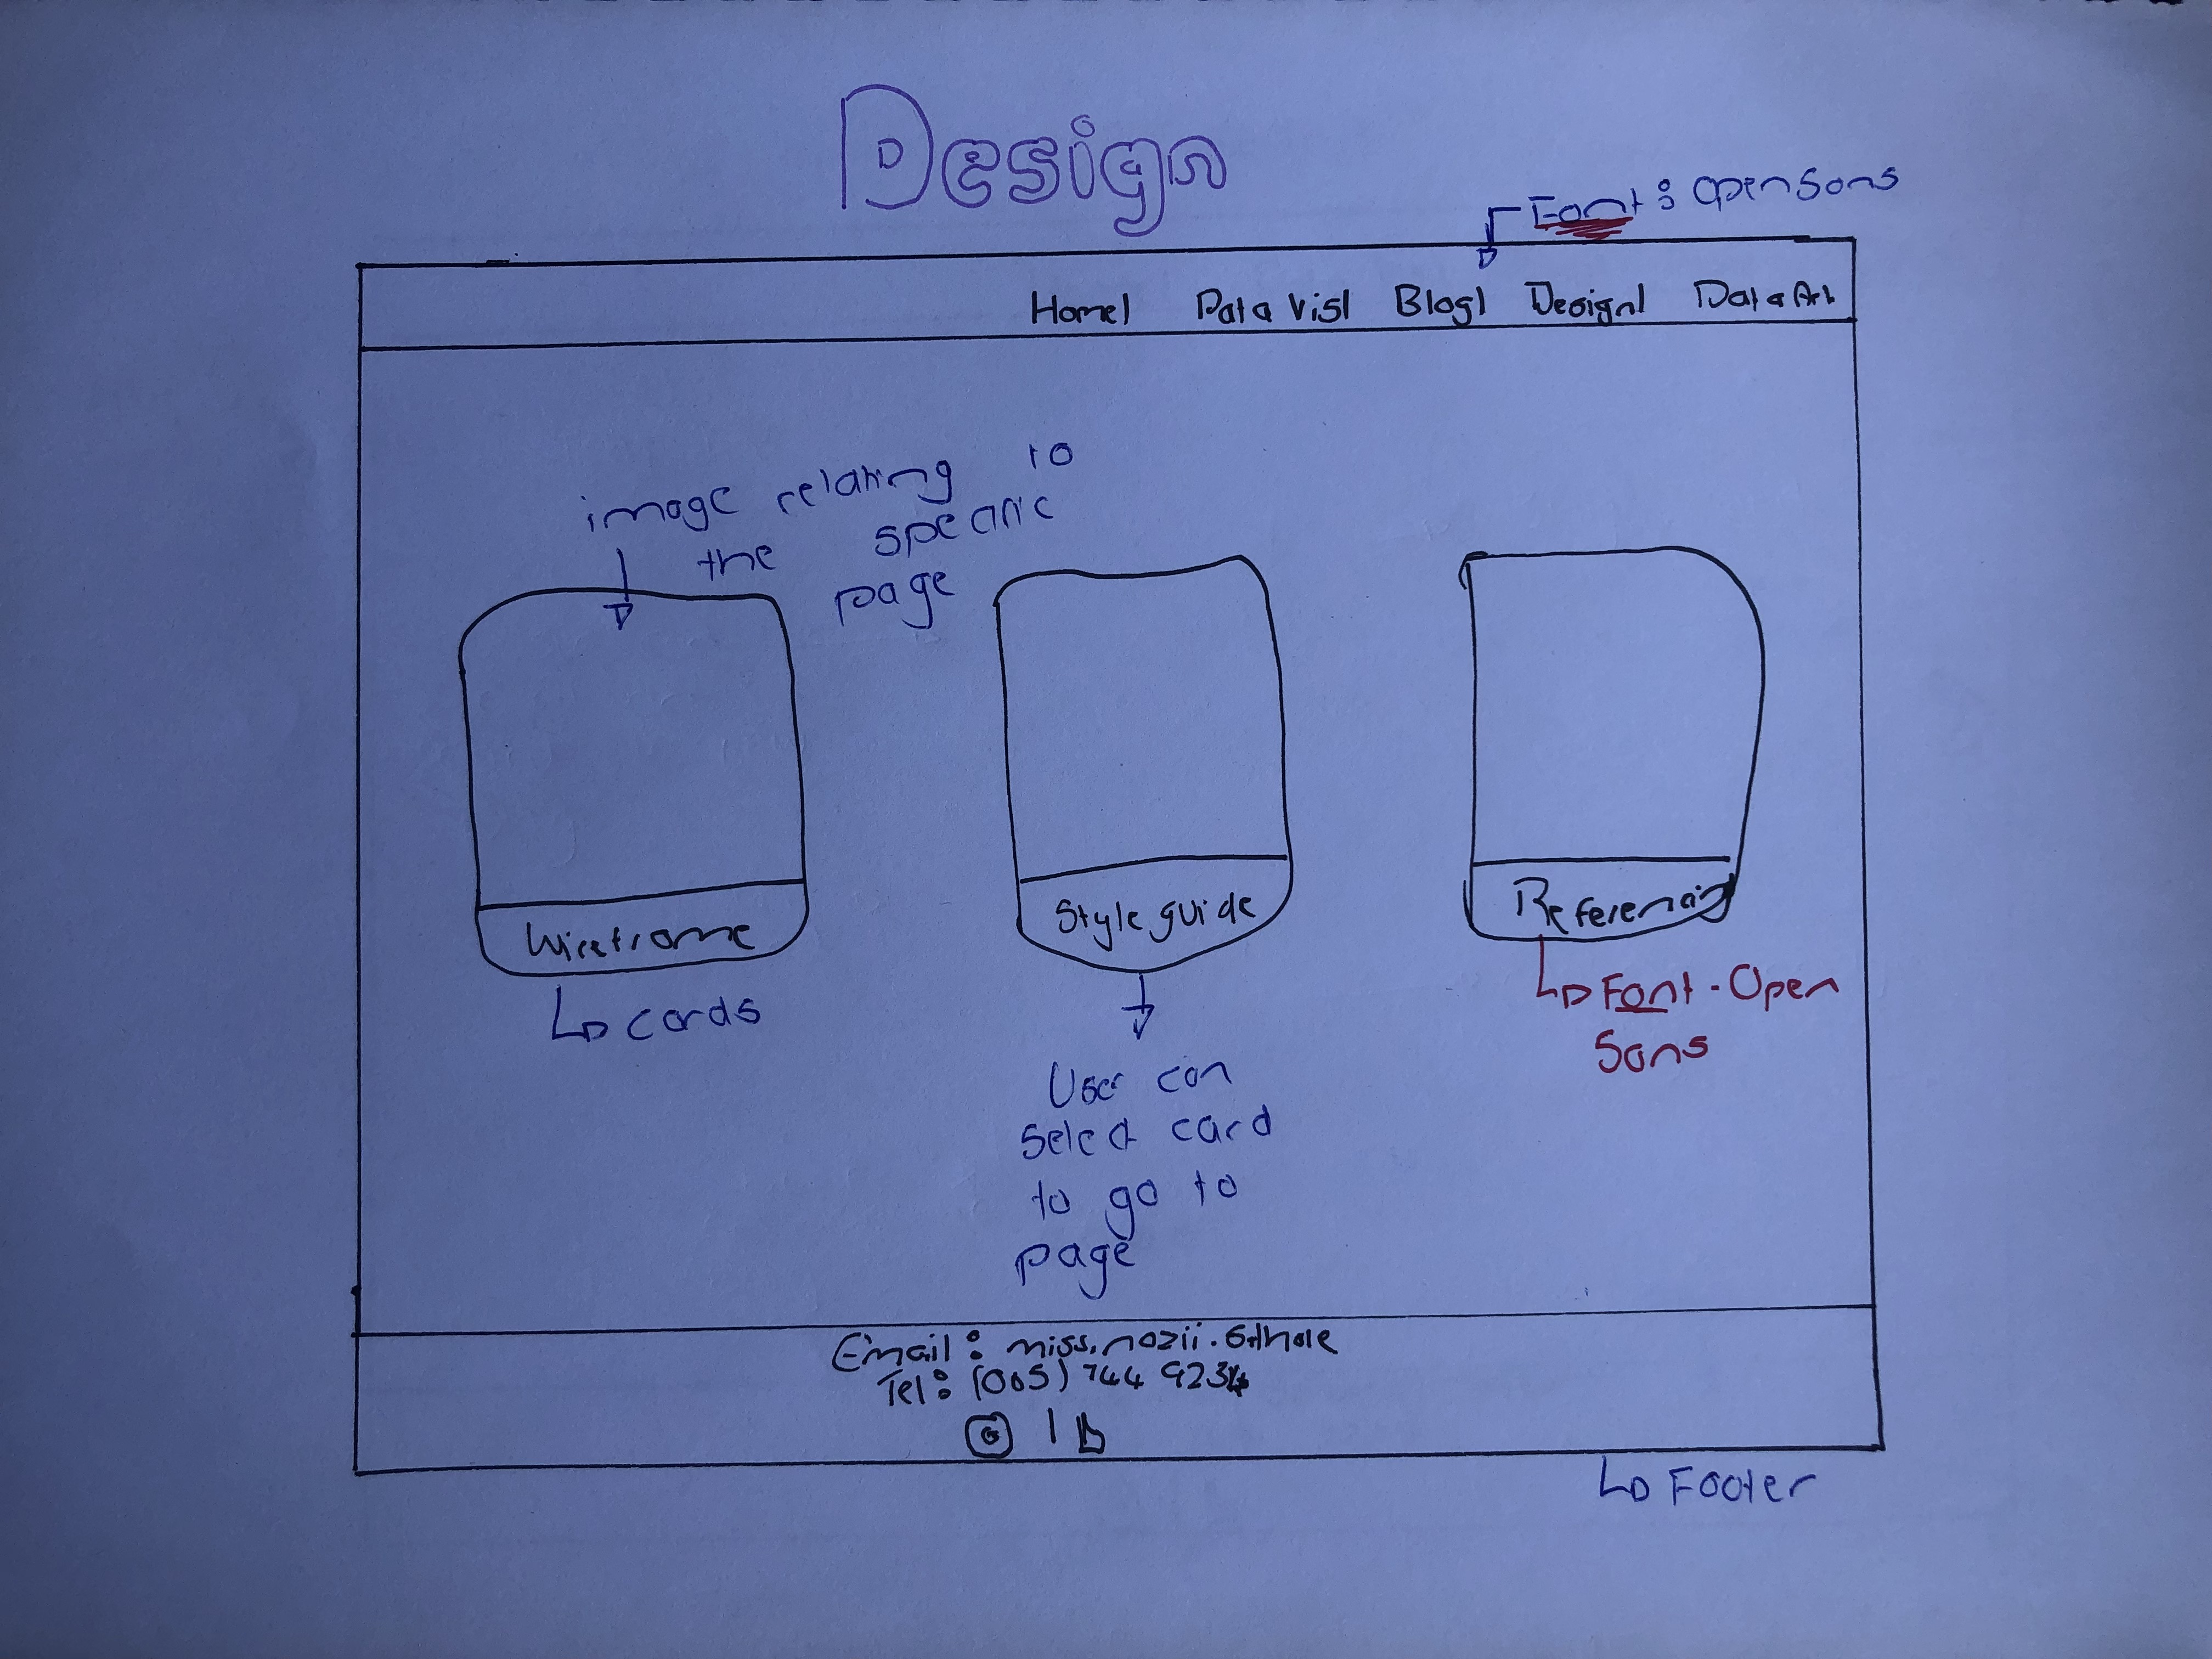 Design
Font : Open Sans
Home| Data Vis| Blog| Design| Data Art
image relating to
the specific
page
Wireframe
Style guide
Referencing
cards
Font - Open
Sans
User can
Select card
to go to
page
Email : miss.nozii.Sithole
Tel : (065) 744 9234
Footer